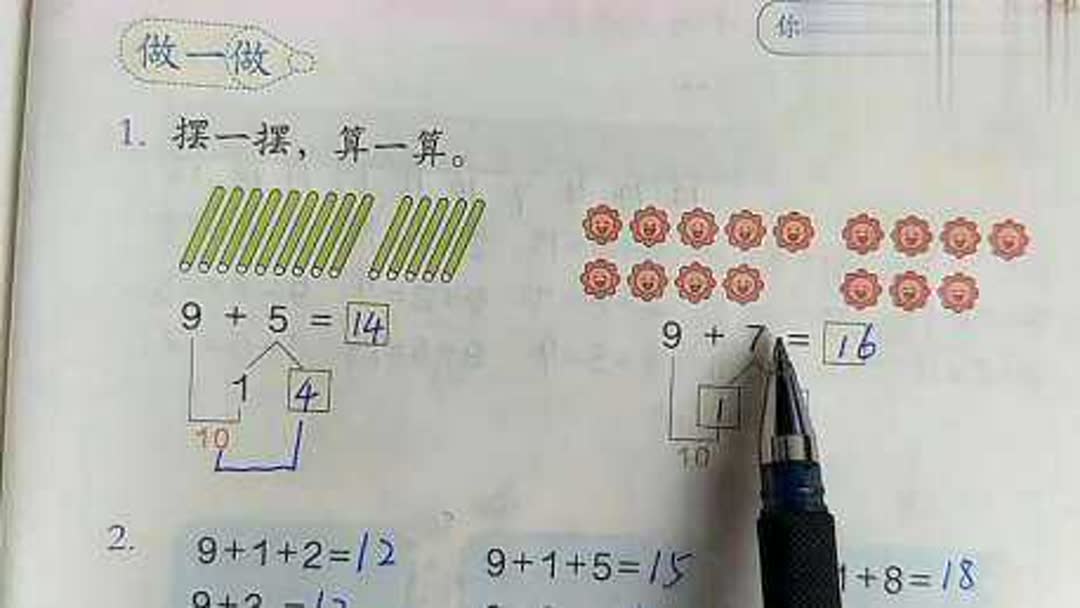 做一做
你
1. 摆一摆，算一算。
9 + 5 = 14
9 + 7 = 16
1 4
1
10
10
2.
9+1+2=12
9+1+5=15
1+8=18